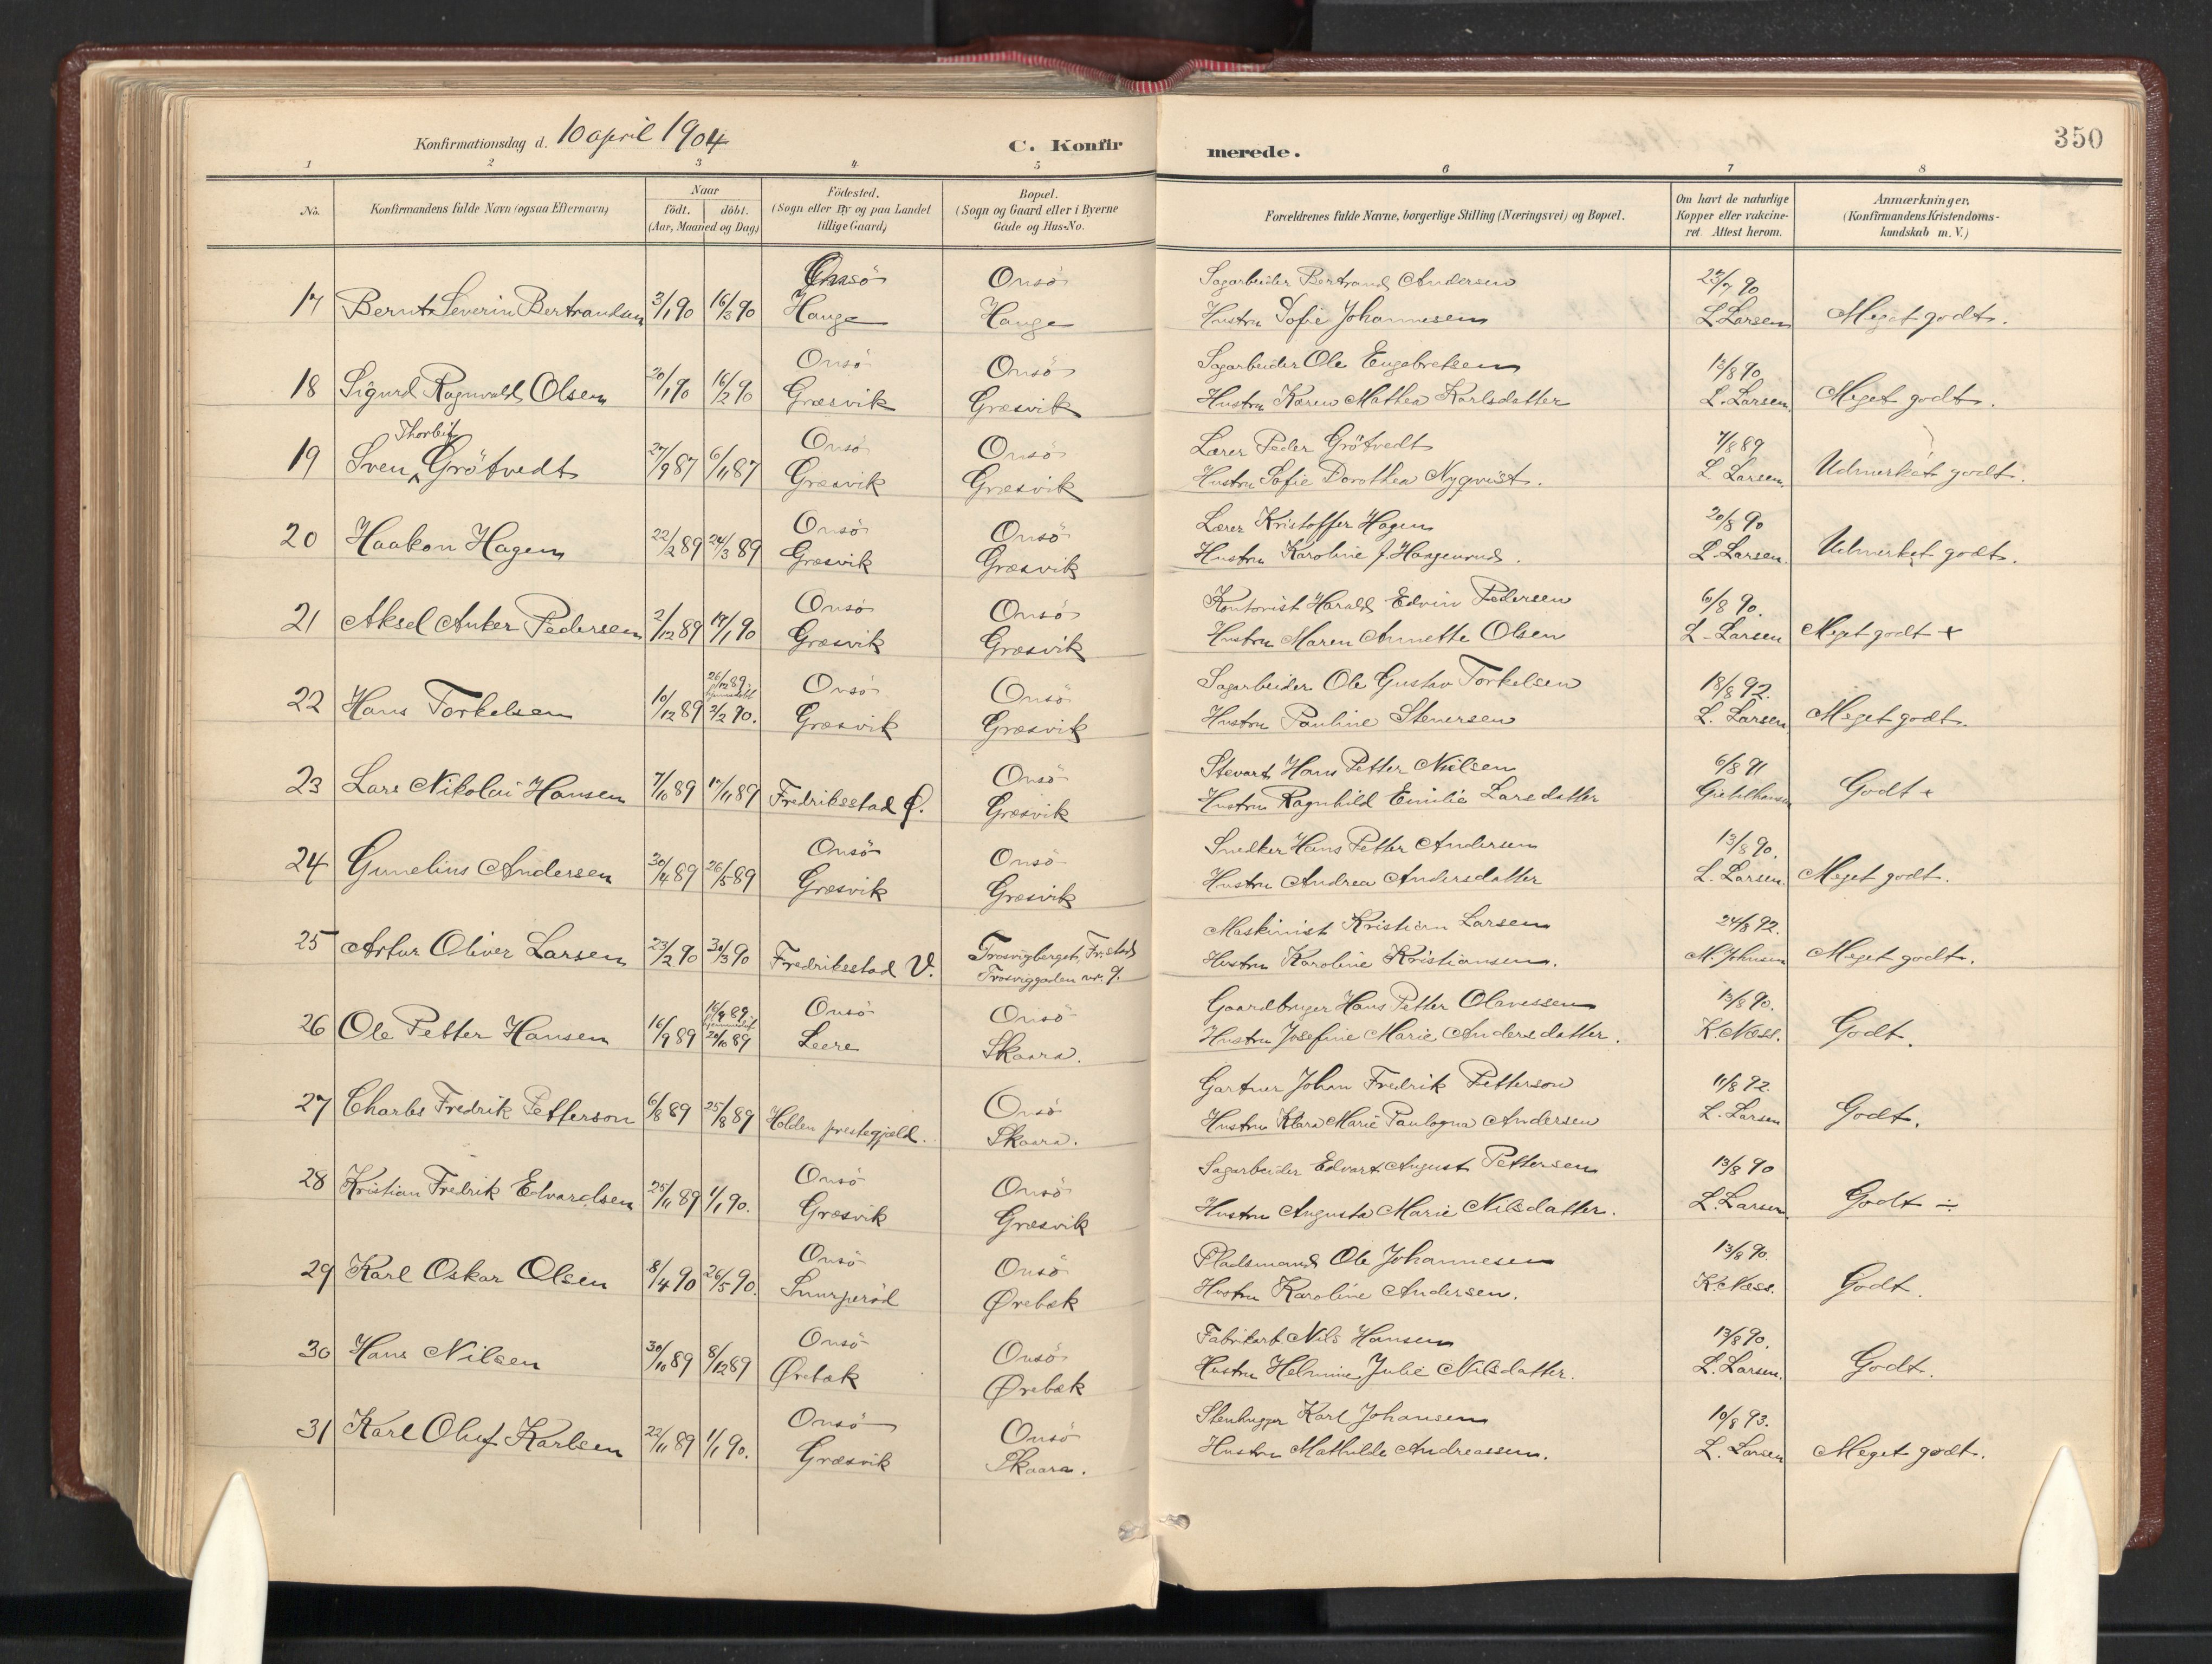 Konfirmationsdag d. 10 april 1904
C. Konfirmerede.
350
1 2 3 4 5 6 7 8
No.
Konfirmandens fulde Navn (ogsaa Efternavn)
Naar
födt. döbt.
(Aar, Maaned og Dag)
Födested.
(Sogn eller By og paa Landet
tillige Gaard)
Bopæl.
(Sogn og Gaard eller i Byerne
Gade og Hus-No.
Forældrenes fulde Navne, borgerlige Stilling (Næringsvei) og Bopæl.
Om havt de naturlige
Kopper eller vakcine-
ret. Attest herom.
Anmærkninger,
(Konfirmandens Kristendoms-
kundskab m. V.)
Onsö Onsö Sagarbeider Bertrand Andersen 23/7 90
17 Bernt Severin Bertrandsen 3/1 90 16/3 90 Hauge Hauge Hustru Sofie Johannesen L Larsen Meget godt.
Onsö Onsö Sagarbeider Ole Engebretsen 13/8 90
18 Sigurd Ragnvald Olsen 20/1 90 16/2 90 Græsvik Græsvik Hustru Karen Mathea Karlsdatter L. Larsen. Meget godt.
Thorleif Onsö Onsö Lærer Peder Grötvedt 7/8 89
19 Sven Grötvedt 27/9 87 6/11 87 Græsvik Græsvik Hustru Sofie Dorothea Nyqvist. L Larsen. Udmerket godt.
Onsö Onsö Lærer Kristoffer Hagen 20/8 90
20 Haakon Hagen 22/2 89 24/3 89 Græsvik Græsvik Hustru Karoline J. Haagenrud. L. Larsen. Udmerket godt.
Onsö Onsö Kontorist Harald Edvin Pedersen 6/8 90.
21 Aksel Anker Pedersen 2/12 89 19/1 90 Græsvik Græsvik Hustru Maren Annette Olsen L. Larsen Meget godt +
26/12 89 hjemmedöbt Onsö Onsö Sagarbeider Ole Gustav Torkelsen 18/8 92.
22 Hans Torkelsen 10/12 89 2/2 90. Græsvik Græsvik Hustru Pauline Stenersen L. Larsen Meget godt.
Onsö Stevart Hans Petter Nielsen 6/8 91
23 Lars Nikolai Hansen 7/10 89 17/11 89 Fredriksstad Ø. Græsvik Hustru Ragnhild Emilie Larsdatter Godt +
Onsö Onsö Snedker Hans Petter Andersen 13/8 90.
24 Gunelius Andersen 30/4 89 26/5 89 Græsvik Græsvik Hustru Andrea Andersdatter L. Larsen. Meget godt.
Trosvigberget, Fr.stad Maskinist Kristian Larsen 24/8 92.
25 Artur Oliver Larsen 23/2 90 30/3 90 Fredriksstad V. Trosviggaden nr. 9. Hustru Karoline Kristiansen. M. Johnsen Meget godt.
16/9 89 hjemmedöbt Onsö Onsö Gaardbruger Hans Petter Olavessen 13/8 90.
26 Ole Petter Hansen 16/9 89 20/10 89 Leere Skaara. Hustru Josefine Marie Andersdatter. K. Næss. Godt.
Onsö Gartner Johan Fredrik Petterson 11/8 92.
27 Charles Fredrik Petterson 6/8 89 25/8 89 Holden prestegjæld. Skaara. Hustru Klara Marie Paulogna Andersen L. Larsen Godt.
Onsö Onsö Sagarbeider Edvart August Pettersen 13/8 90
28 Kristian Fredrik Edvardsen 25/11 89 1/1 90. Græsvik Græsvik Hustru Augusta Marie Nilsdatter. L. Larsen. Godt ÷
Onsö Onsö Pladsmand Ole Johannesen 13/8 90.
29 Karl Oskar Olsen 8/4 90 26/5 90. Snurperöd Ørebæk Hustru Karoline Andersen. K. Næss. Godt.
Onsö Onsö Fabrikarb. Nils Hansen 13/8 90.
30 Hans Nilsen 30/10 89 8/12 89 Ørebæk Ørebæk Hustru Helmine Julie Nilsdatter. L. Larsen. Godt.
Onsö Onsö Stenhugger Karl Johansen 10/8 93.
31 Karl Oluf Karlsen 22/11 89 1/1 90. Græsvik Skaara. Hustru Mathilde Andreassen. L. Larsen Meget godt.